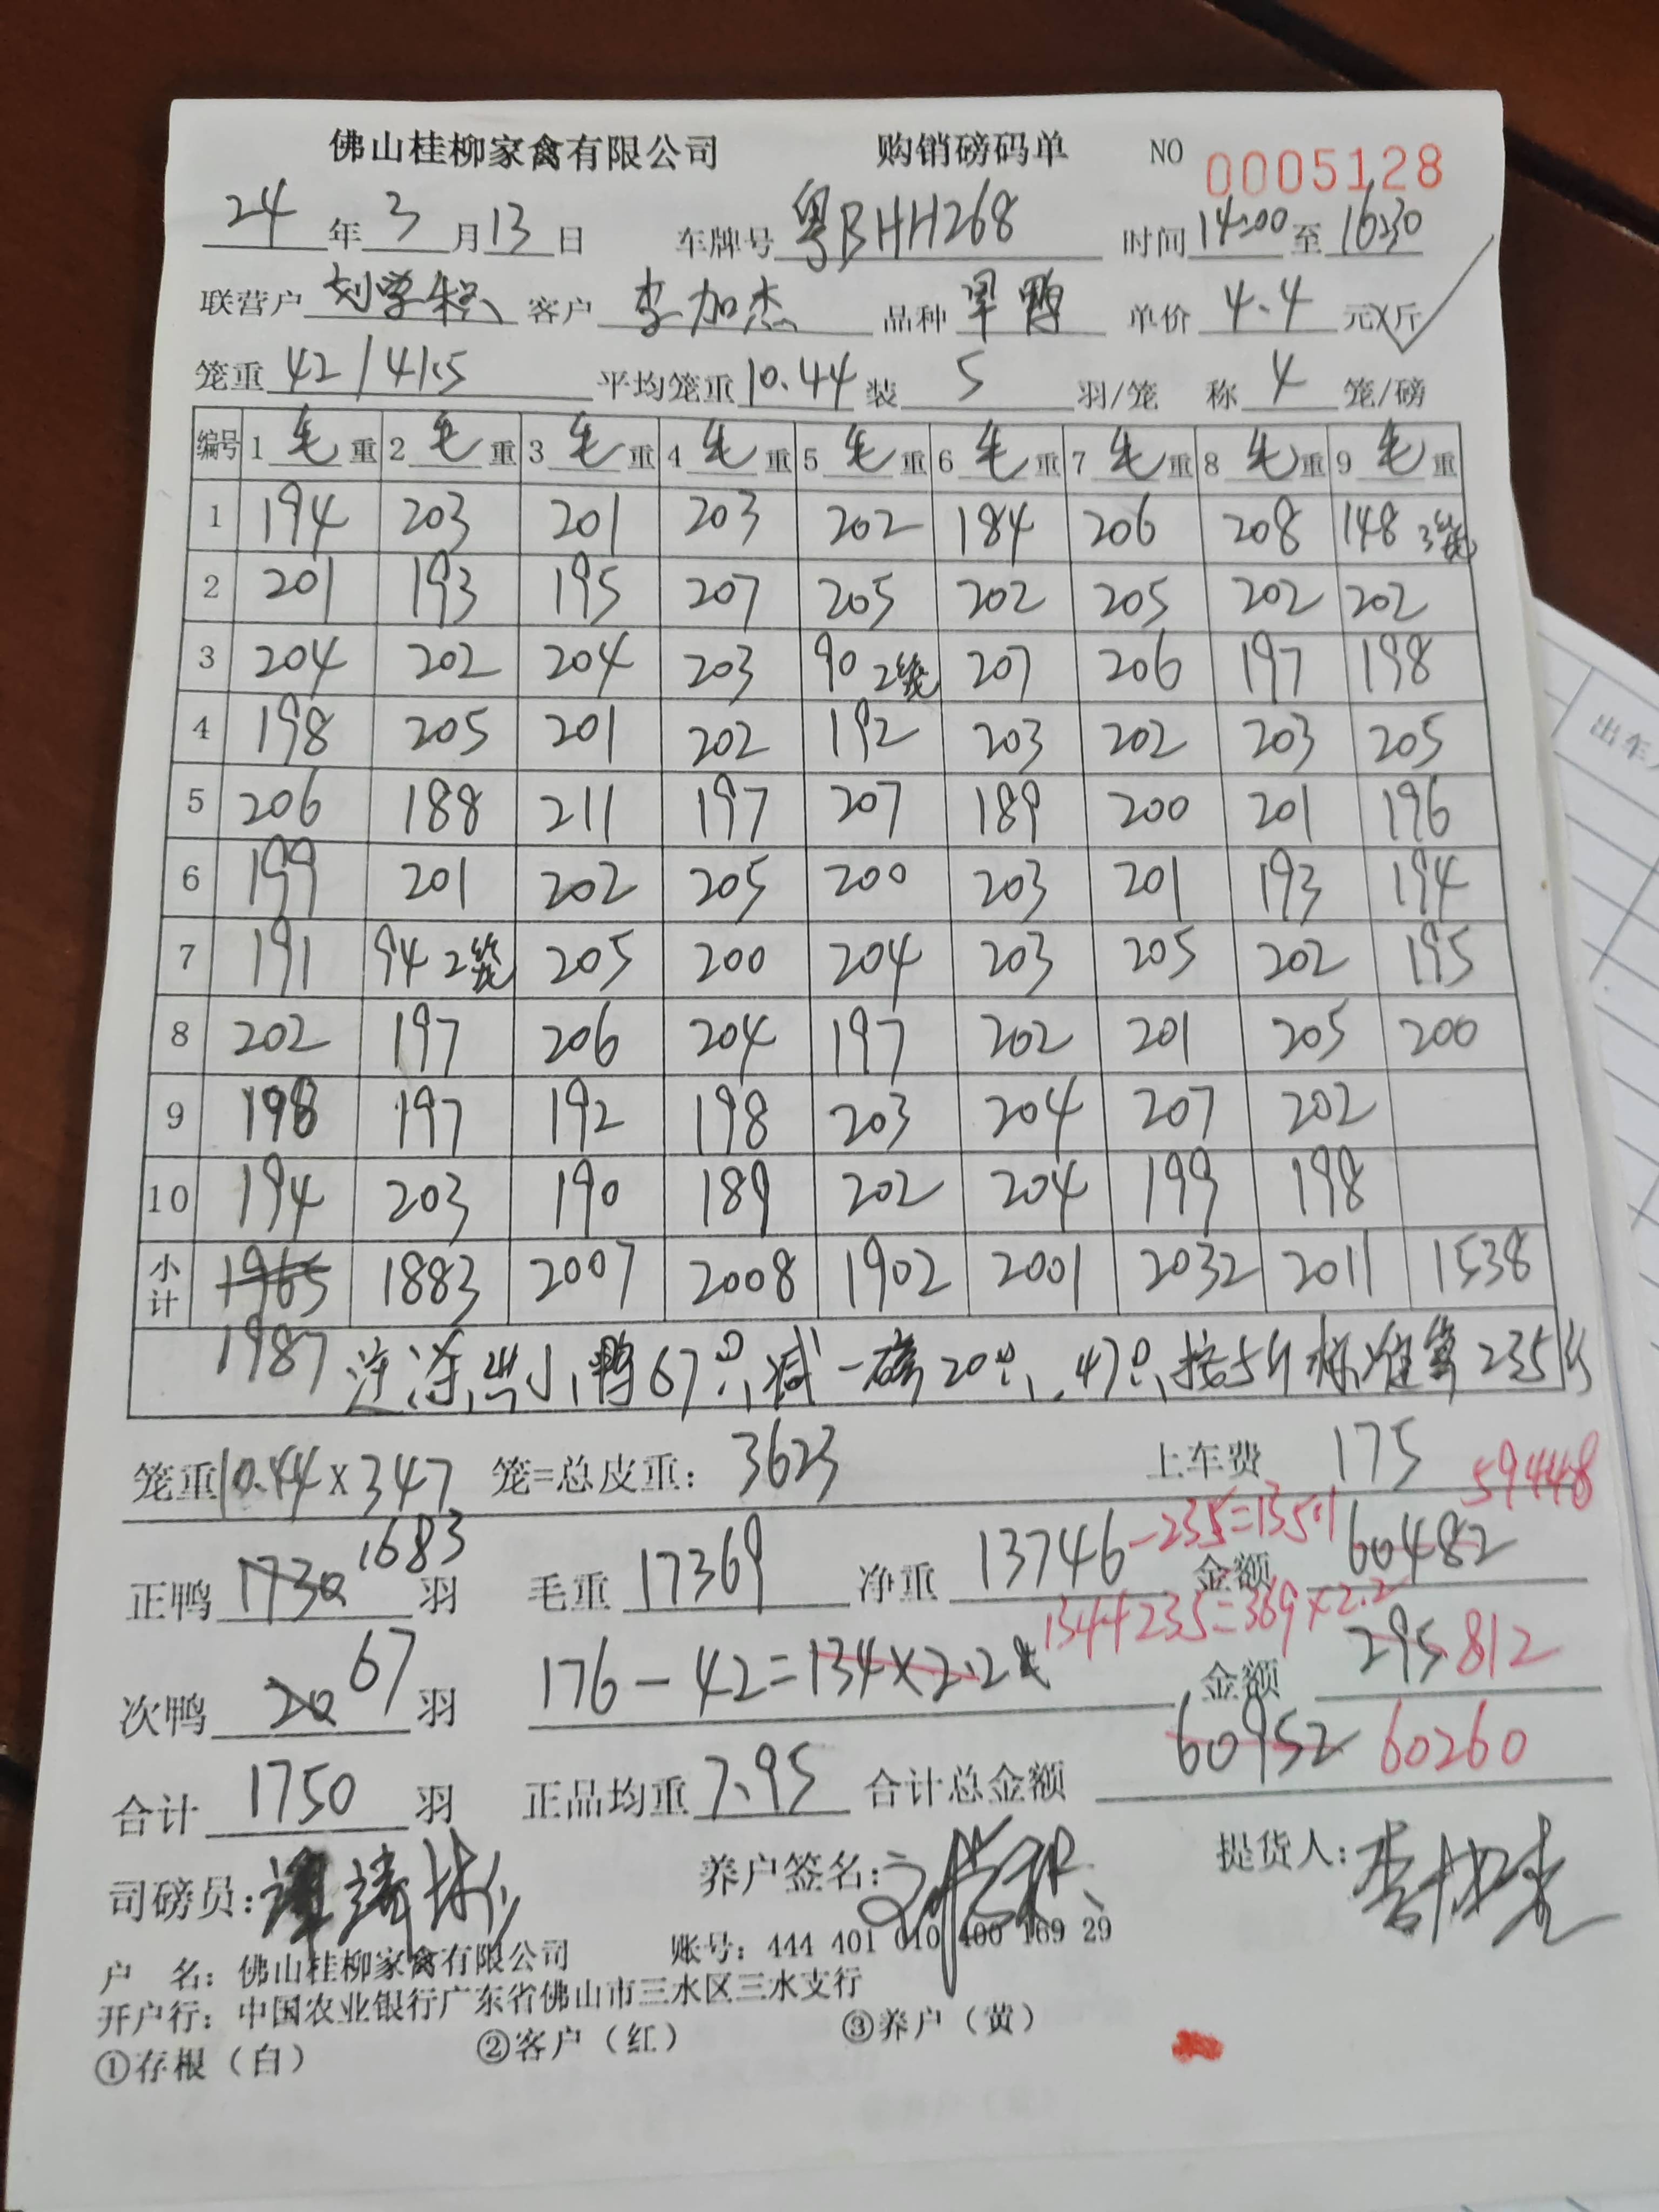 佛山桂柳家禽有限公司 购销磅码单 NO 0005128
24年3月13日 车牌号 粤BHH268 时间14:00至16:30
联营户 刘学 客户 李加杰 品种 旱鸭 单价 4.4 元/斤
笼重 42/41.5 平均笼重 10.44 装 5 羽/笼 称 4 笼/磅
编号 1毛重 2毛重 3毛重 4毛重 5毛重 6毛重 7毛重 8毛重 9毛重
1 194 203 201 203 202 184 206 208 148 3笼
2 201 193 195 207 205 202 205 202 202
3 204 202 204 203 90 2笼 207 206 197 198
4 198 205 201 202 192 203 202 203 205
5 206 188 211 197 207 189 200 201 196
6 199 201 202 205 200 203 201 193 194
7 191 94 2笼 205 200 204 203 205 202 195
8 202 197 206 204 197 202 201 205 200
9 198 197 192 198 203 204 207 202
10 194 203 190 189 202 204 199 198
小计 1965 1883 2007 2008 1902 2001 2032 2011 1538
1987 小鸭67只减一磅20只,47只按5斤标准算235斤
笼重10.44×347 笼=总皮重: 3623 上车费 175
59448
正鸭 1730 1683 羽 毛重 17369 净重 13746 -235=13511 金额 60482
134+235=369×2.2
次鸭 20 67 羽 176-42=134×2.2 金额 295 812
合计 1750 羽 正品均重 7.95 合计总金额 60952 60260
司磅员: 养户签名: 提货人:
户 名: 佛山桂柳家禽有限公司 账号: 444 401 010 400 169 29
开户行: 中国农业银行广东省佛山市三水区三水支行
①存根(白) ②客户(红) ③养户(黄)
出车